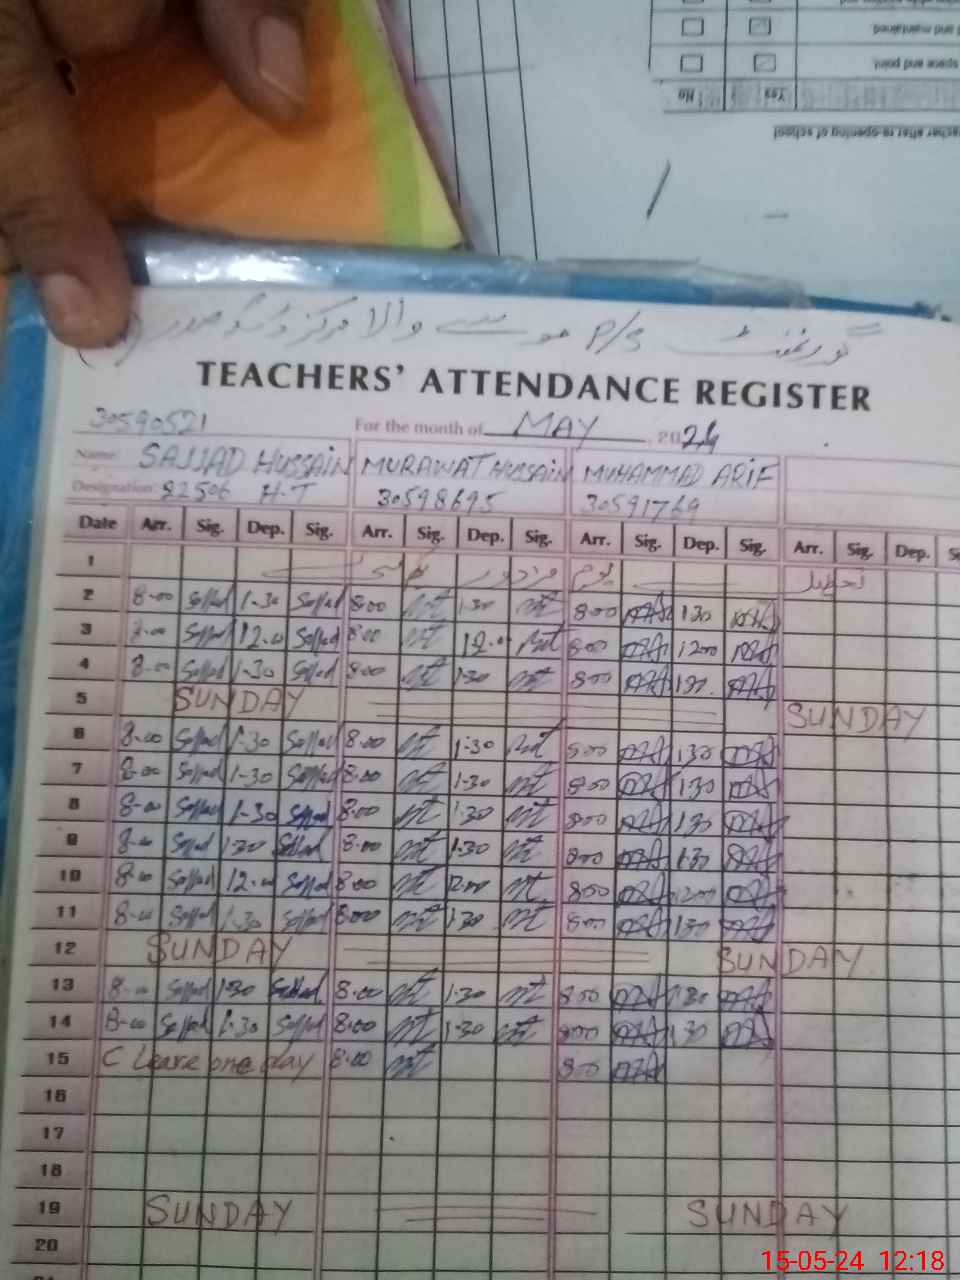 No Yes
space and point.
and maintained
teacher after re-opening of school
گورنمنٹ P/S موسے والا مرکز ڈسکہ
TEACHERS' ATTENDANCE REGISTER
30590521 For the month of MAY, 2024
Name: SAJJAD HUSSAIN MURAWAT HUSSAIN MUHAMMAD ARIF
Designation: 82506 H.T 30598695 30591769
Date Arr. Sig. Dep. Sig. Arr. Sig. Dep. Sig. Arr. Sig. Dep. Sig. Arr. Sig. Dep.
1 تعطیل یوم مزدور
2 8-00 Sajjad 1-30 Sajjad 8:00 1:30 800 130
3 8-00 Sajjad 12-00 Sajjad 8:00 12:00 800 1200
4 8-00 Sajjad 1-30 Sajjad 8:00 1:30 800 130
5 SUNDAY SUNDAY
6 8-00 Sajjad 1-30 Sajjad 8:00 1:30 800 130
7 8-00 Sajjad 1-30 Sajjad 8:00 1:30 800 1:30
8 8-00 Sajjad 1-30 Sajjad 8:00 1:30 800 130
9 8-00 Sajjad 1-30 Sajjad 8:00 1:30 800 1:30
10 8-00 Sajjad 12-00 Sajjad 8:00 12:00 800 1200
11 8-00 Sajjad 1-30 Sajjad 8:00 1:30 800 130
12 SUNDAY SUNDAY
13 8-00 Sajjad 1-30 Sajjad 8:00 1:30 800 130
14 8-00 Sajjad 1-30 Sajjad 8:00 1:30 800 130
15 C Leave one day 8:00 800
16
17
18
19 SUNDAY SUNDAY
20
15-05-24 12:18